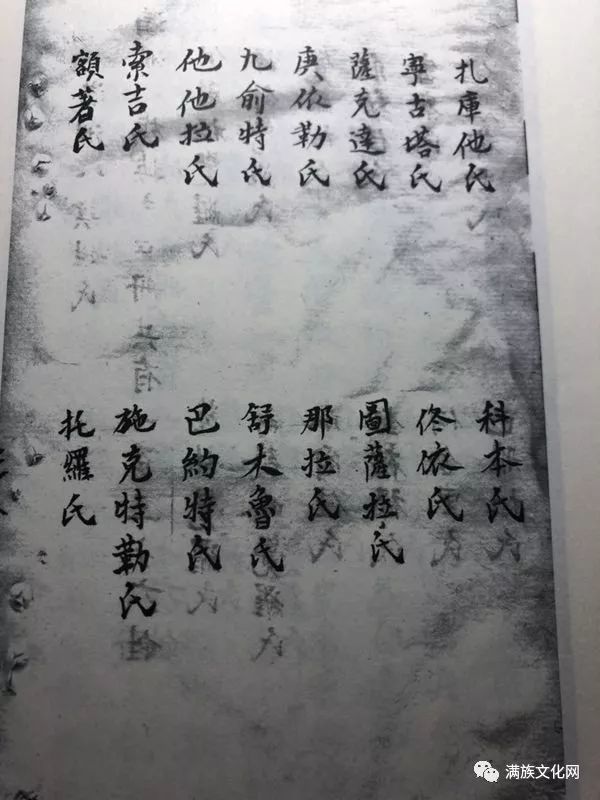 扎庫他氏
寧古塔氏
薩克達氏
庚依勒氏
九俞特氏
他他拉氏
索吉氏
額著氏
科本氏
佟依氏
圖薩拉氏
那拉氏
舒木魯氏
巴約特氏
施克特勒氏
托羅氏
满族文化网